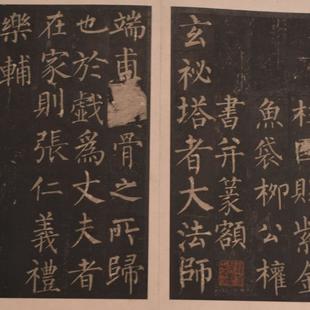 柱國賜紫金
魚袋柳公權
書并篆額
玄祕塔者大法師
端甫骨之所歸
也於戲爲丈夫者
在家則張仁義禮
樂輔